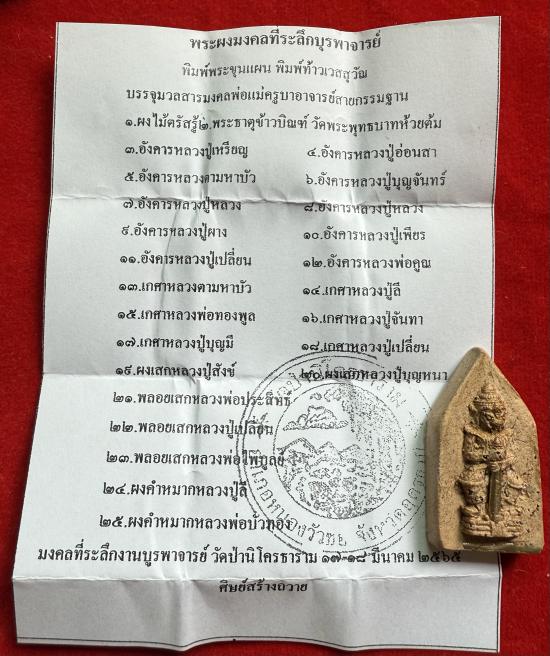 พระผงมงคลที่ระลึกบุรพาจารย์
พิมพ์พระขุนแผน พิมพ์ท้าวเวสสุวัณ
บรรจุมวลสารมงคลพ่อแม่ครูบาอาจารย์สายกรรมฐาน
๑.ผงไม้ตรัสรู้ ๒.พระธาตุข้าวบิณฑ์ วัดพระพุทธบาทห้วยต้ม
๓.อังคารหลวงปู่เหรียญ ๔.อังคารหลวงปู่อ่อนสา
๕.อังคารหลวงตามหาบัว ๖.อังคารหลวงปู่บุญจันทร์
๗.อังคารหลวงปู่หลวง ๘.อังคารหลวงปู่หลวง
๙.อังคารหลวงปู่ผาง ๑๐.อังคารหลวงปู่เพียร
๑๑.อังคารหลวงปู่เปลี่ยน ๑๒.อังคารหลวงพ่อคูณ
๑๓.เกศาหลวงตามหาบัว ๑๔.เกศาหลวงปู่ลี
๑๕.เกศาหลวงพ่อทองพูล ๑๖.เกศาหลวงปู่จันทา
๑๗.เกศาหลวงปู่บุญมี ๑๘.เกศาหลวงปู่เปลี่ยน
๑๙.ผงเสกหลวงปู่สังข์ ๒๐.ผงเสกหลวงปู่บุญหนา
๒๑.พลอยเสกหลวงพ่อประสิทธิ์
๒๒.พลอยเสกหลวงปู่เปลี่ยน
๒๓.พลอยเสกหลวงพ่อไพบูลย์
๒๔.ผงคำหมากหลวงปู่ลี
๒๕.ผงคำหมากหลวงพ่อบัวทอง
มงคลที่ระลึกงานบูรพาจารย์ วัดป่านิโครธาราม ๑๗-๑๘ มีนาคม ๒๕๖๕
ศิษย์สร้างถวาย
อำเภอหนองวัวซอ จังหวัดอุดรธานี